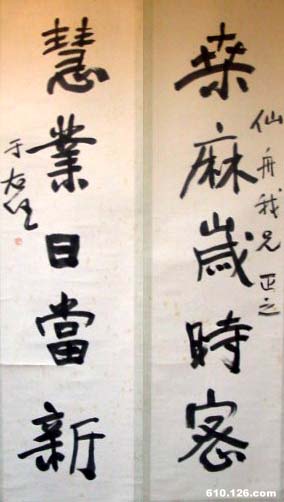 桑麻歲時密
仙舟我兄 正之
慧業日當新
于右任
610.126.com